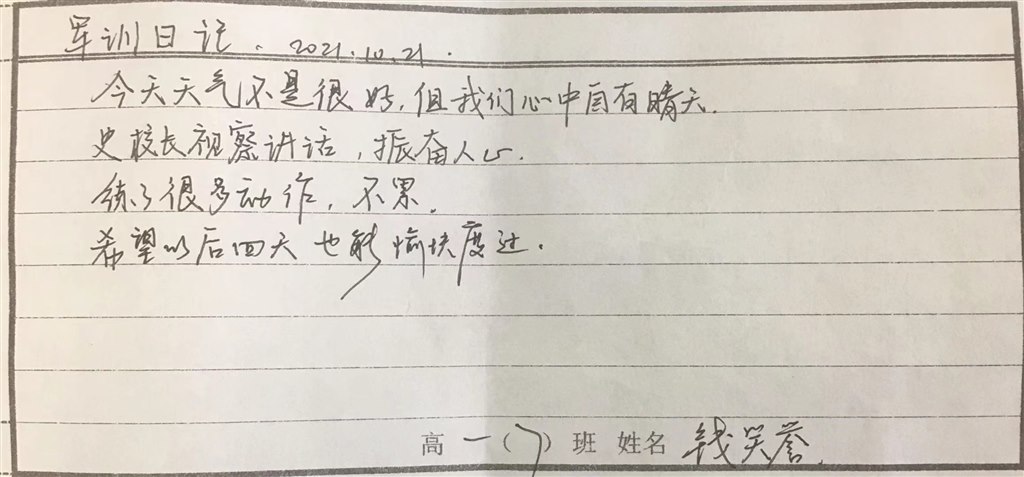 军训日记. 2021.10.21.
今天天气不是很好,但我们心中自有晴天.
史校长视察讲话,振奋人心.
练了很多动作,不累.
希望以后四天也能愉快度过.
高一(7)班 姓名 钱笑誉.